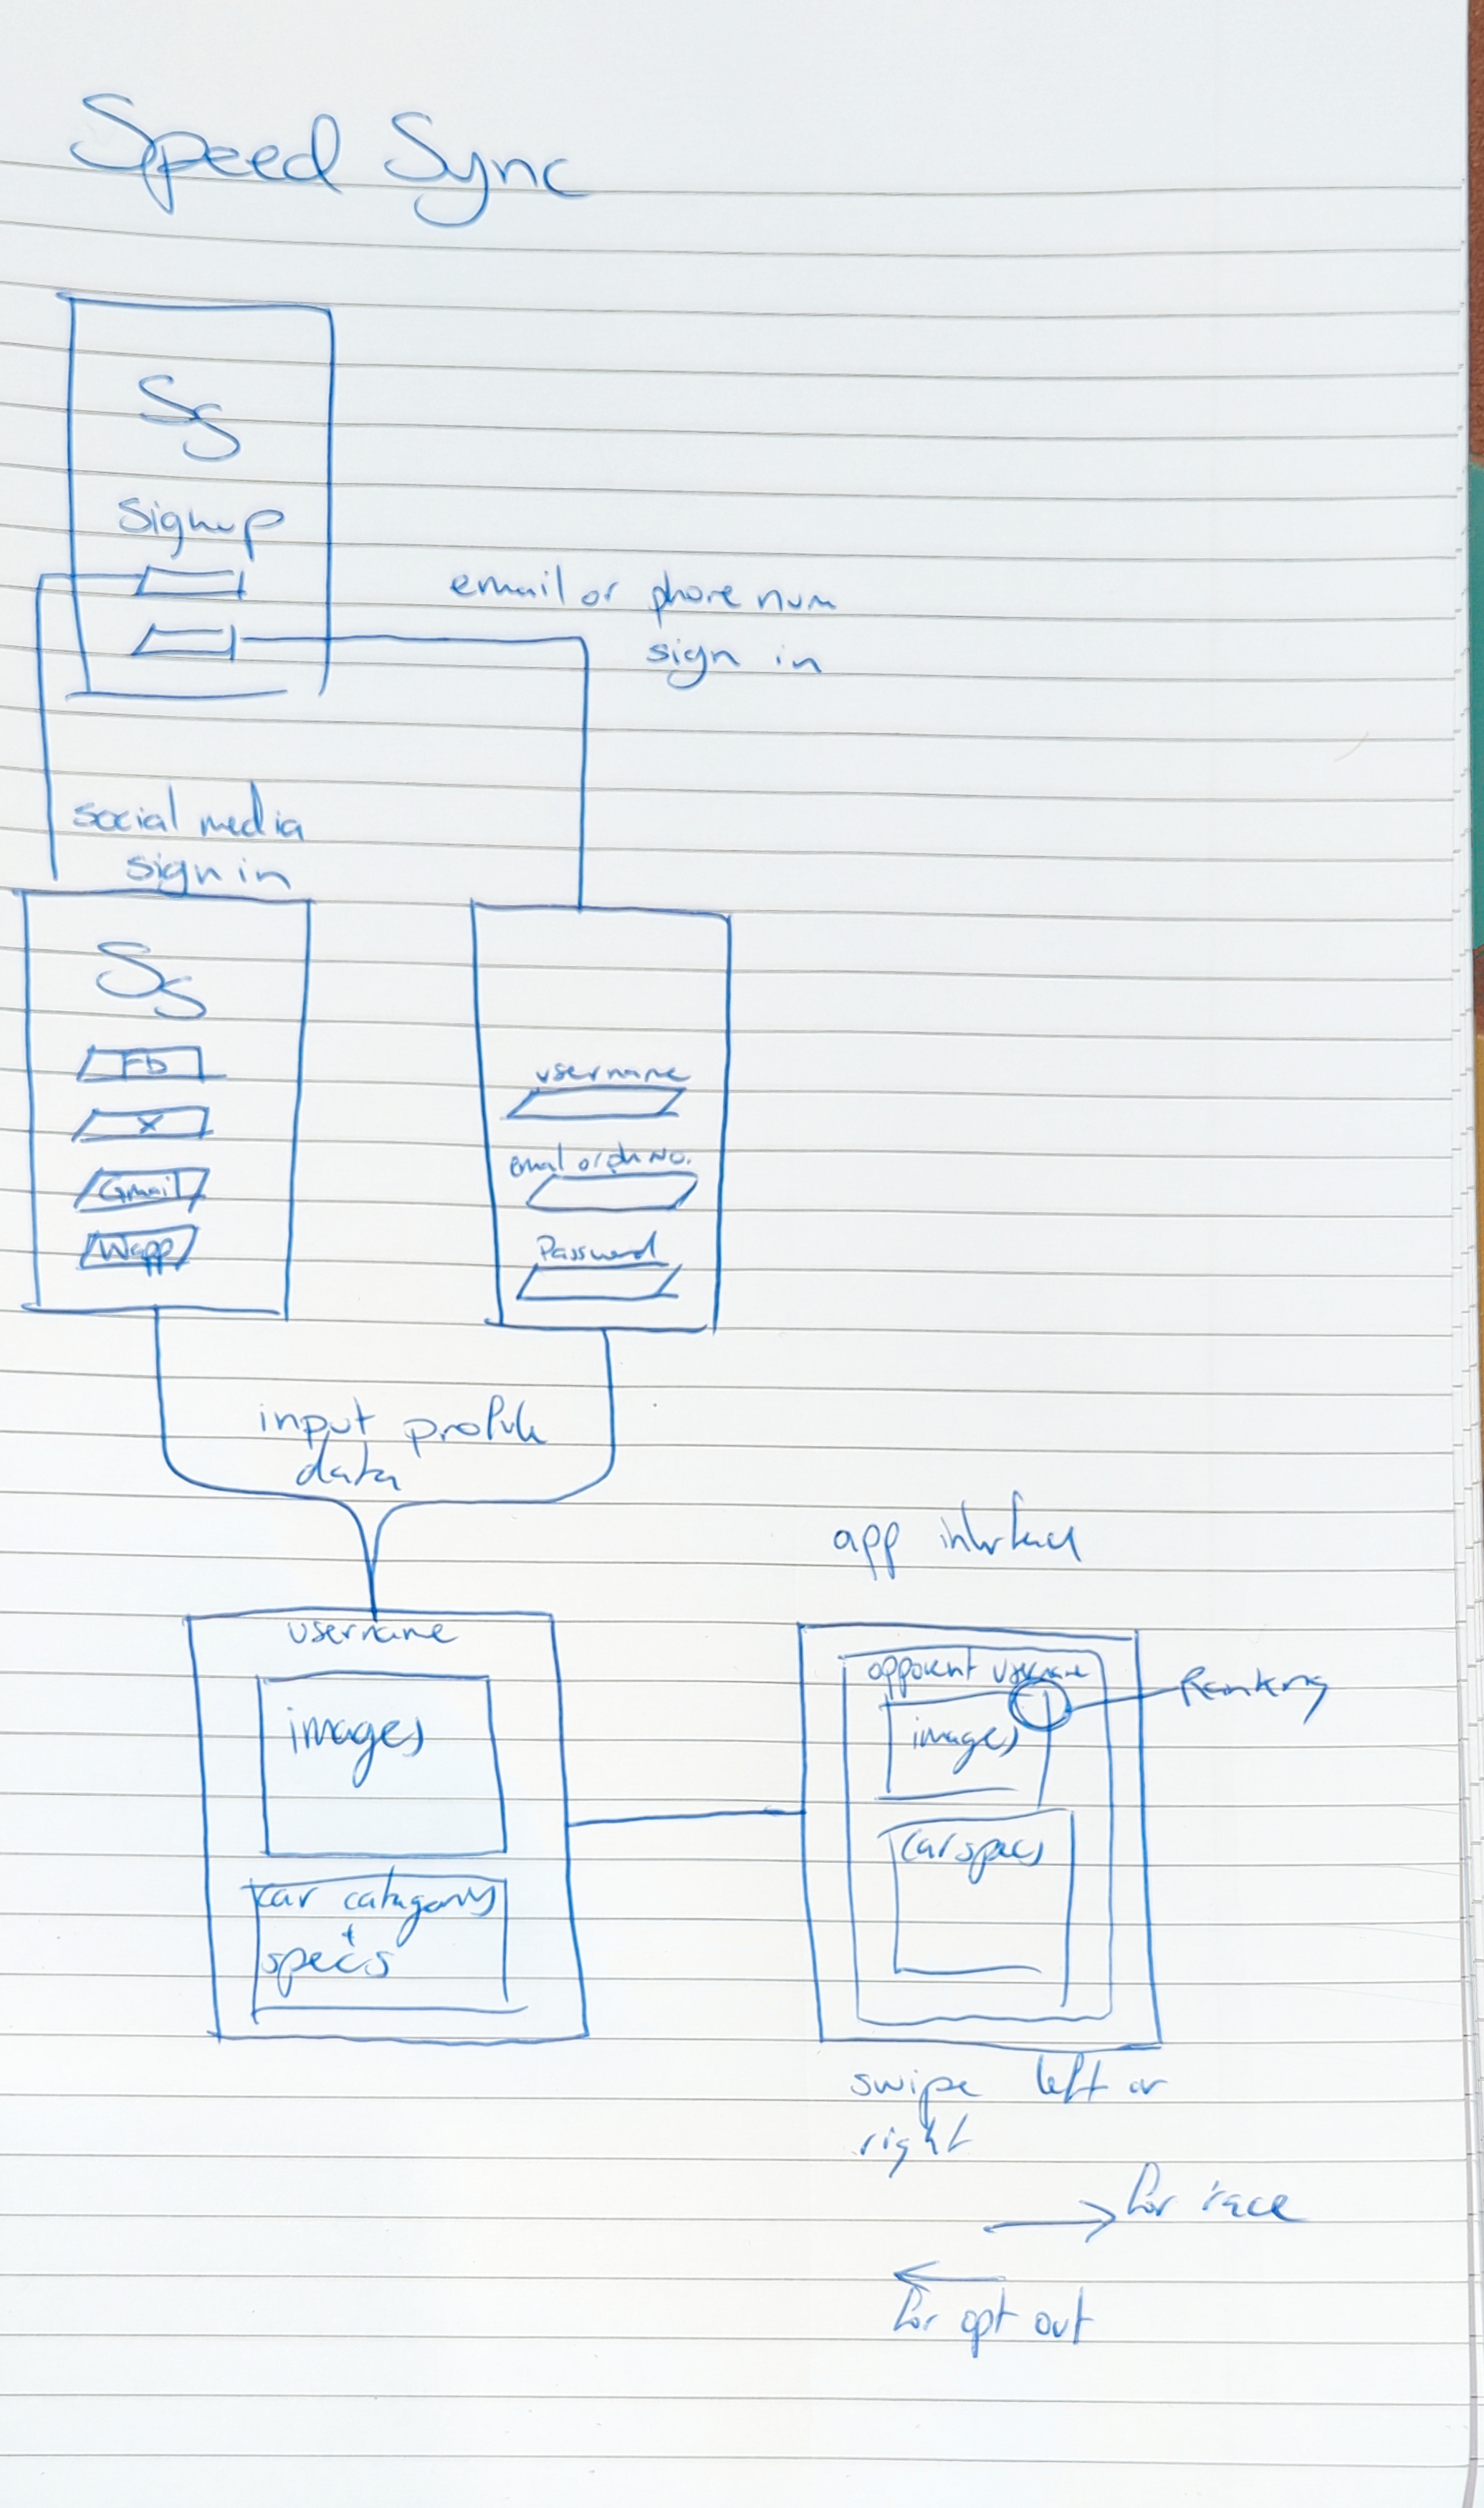 Speed Sync
SS
Signup
email or phone num
sign in
social media
sign in
SS
Fb
X
Gmail
Wapp
username
email or ph No.
Password
input profile
data
app interface
username
images
car catagory
+
specs
opponent username
Ranking
images
car specs
swipe left or
right
→ for race
←
for opt out